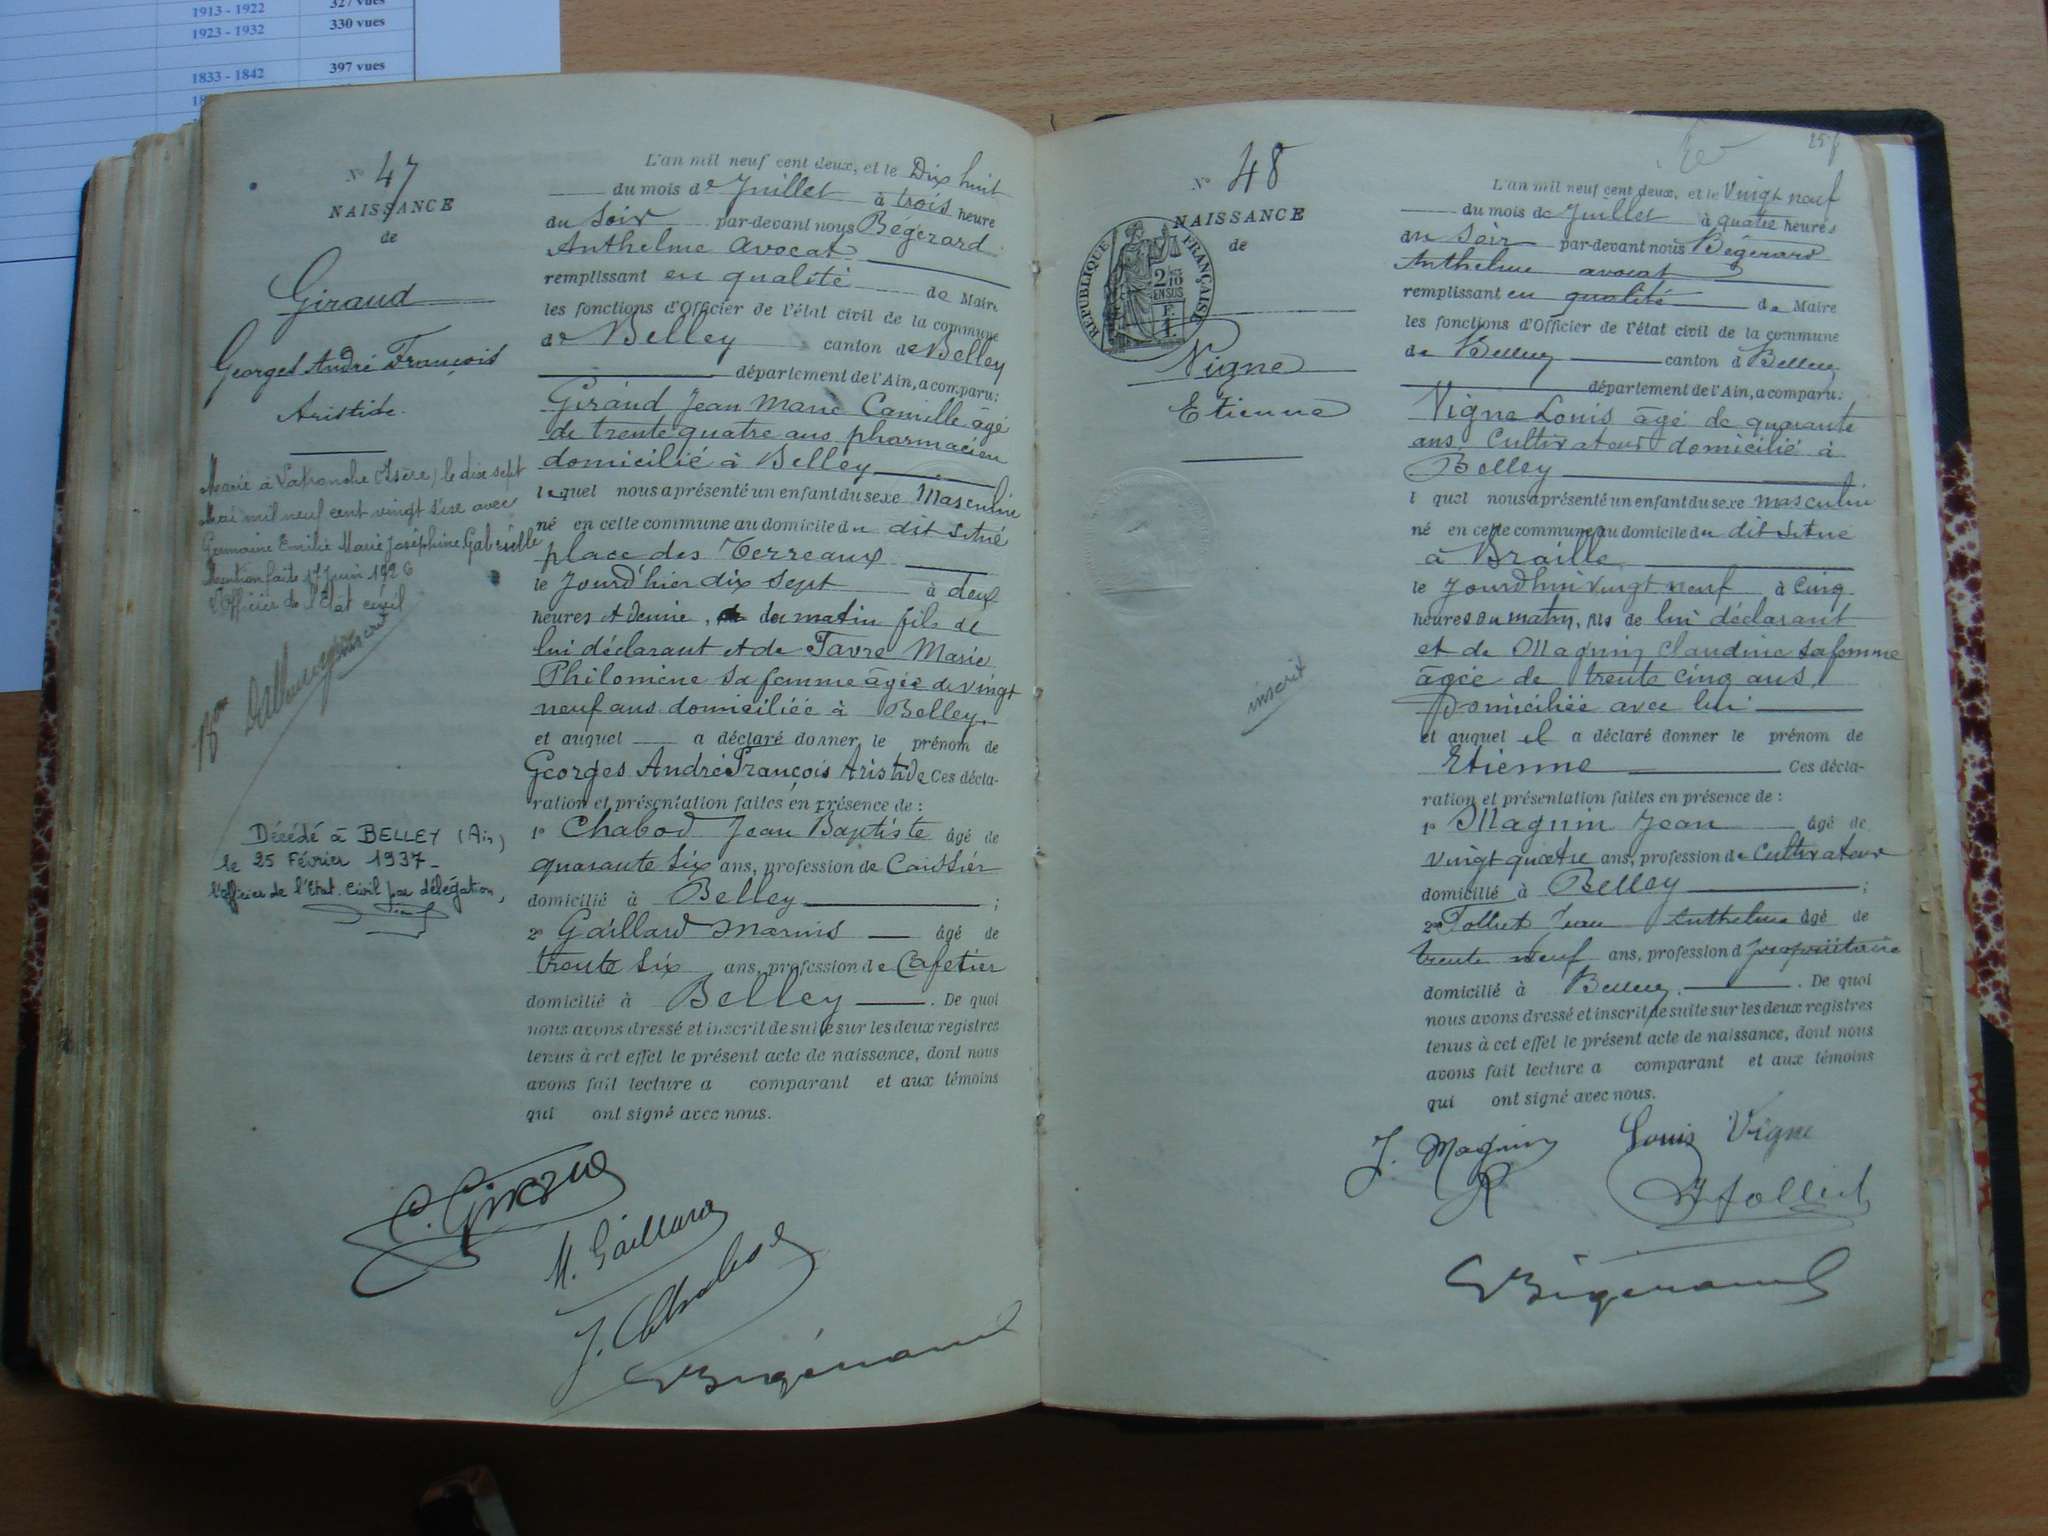 1913 - 1922 327 vues
1923 - 1932 330 vues
1833 - 1842 397 vues
N° 47
NAISSANCE
de
Giraud
Georges André François
Aristide
Marié à Latronche (Isère) le dix sept
Mai mil neuf cent vingt six avec
Germaine Emilie Marie Joséphine Gabrielle
Mention faite 17 Juin 1926
l'Officier de l'Etat civil
inscrit
Décédé à BELLEY (Ain)
le 25 Février 1937 -
l'officier de l'Etat. Civil par délégation,
L'an mil neuf cent deux, et le Dix huit
du mois de Juillet à trois heure
du Soir par-devant nous Bégerard
Anthelme avocat
remplissant en qualité de Maire
les fonctions d'Officier de l'état civil de la commune
de Belley canton de Belley
département de l'Ain, a comparu:
Giraud Jean Marie Camille âgé
de trente quatre ans pharmacien
domicilié à Belley
lequel nous a présenté un enfant du sexe Masculin
né en cette commune au domicile du dit situé
place des Terreaux
le Jourd'hier dix sept à deux
heures et demie, du matin fils de
lui déclarant et de Favre Marie
Philomène sa femme âgée de vingt
neuf ans domiciliée à Belley.
et auquel a déclaré donner le prénom de
Georges André François Aristide Ces décla-
ration et présentation faites en présence de :
1° Chabod Jean Baptiste âgé de
quarante six ans, profession de Caissier
domicilié à Belley ;
2° Gaillard Marius âgé de
trente six ans, profession de Cafetier
domicilié à Belley . De quoi
nous avons dressé et inscrit de suite sur les deux registres
tenus à cet effet le présent acte de naissance, dont nous
avons fait lecture a comparant et aux témoins
qui ont signé avec nous.
C. Giraud
M. Gaillard
J. Chabod
Bégerard
25
N° 48
NAISSANCE
de
REPUBLIQUE FRANÇAISE
2/10
EN SUS
F.
1.
Vigne
Etienne
inscrit
L'an mil neuf cent deux, et le Vingt neuf
du mois de Juillet à quatre heures
du Soir par-devant nous Bégerard
Anthelme avocat
remplissant en qualité de Maire
les fonctions d'Officier de l'état civil de la commune
de Belley canton d Belley
département de l'Ain, a comparu:
Vigne Louis âgé de quarante
ans Cultivateur domicilié à
Belley
l quel nous a présenté un enfant du sexe masculin
né en cette commune au domicile du dit situé
à Braille
le Jourdhui vingt neuf à cinq
heures du matin, fils de lui déclarant
et de Magnin claudine sa femme
âgée de trente cinq ans,
Domiciliée avec lui
et auquel il a déclaré donner le prénom de
Etienne Ces décla-
ration et présentation faites en présence de :
1° Magnin Jean âgé de
vingt quatre ans, profession de Cultivateur
domicilié à Belley ;
2° Folliet Jean Anthelme âgé de
trente neuf ans, profession d propriétaire
domicilié à Belley . De quoi
nous avons dressé et inscrit de suite sur les deux registres
tenus à cet effet le présent acte de naissance, dont nous
avons fait lecture a comparant et aux témoins
qui ont signé avec nous.
J. Magnin Louis Vigne
Folliet
Bégerard